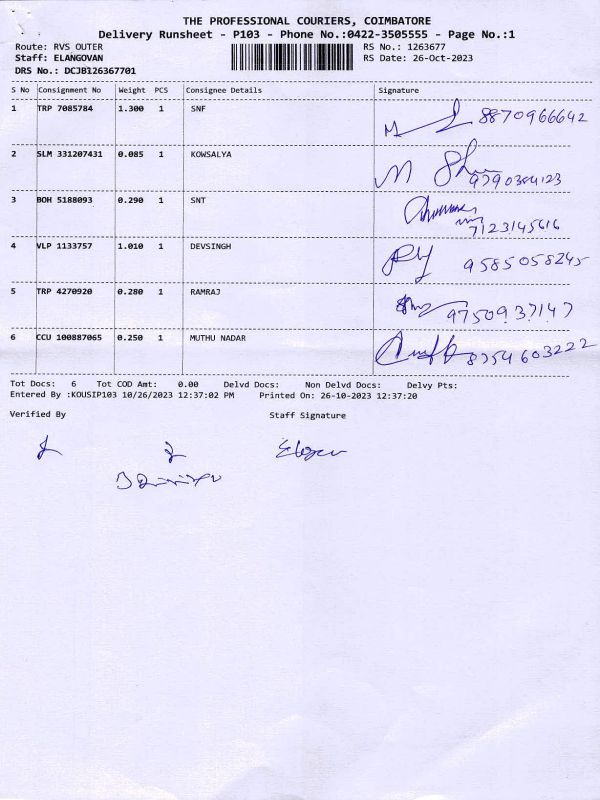 THE PROFESSIONAL COURIERS, COIMBATORE
Delivery Runsheet - P103 - Phone No.:0422-3505555 - Page No.:1
Route: RVS OUTER RS No.: 1263677
Staff: ELANGOVAN RS Date: 26-Oct-2023
DRS No.: DCJB126367701
S No Consignment No Weight PCS Consignee Details Signature
1 TRP 7085784 1.300 1 SNF 8870966642
2 SLM 331207431 0.085 1 KOWSALYA
3 BOH 5188093 0.290 1 SNT 7123145616
4 VLP 1133757 1.010 1 DEVSINGH 9585058245
5 TRP 4270920 0.280 1 RAMRAJ 9750937147
6 CCU 100887065 0.250 1 MUTHU NADAR 8754603222
Tot Docs: 6 Tot COD Amt: 0.00 Delvd Docs: Non Delvd Docs: Delvy Pts:
Entered By :KOUSIP103 10/26/2023 12:37:02 PM Printed On: 26-10-2023 12:37:20
Verified By Staff Signature